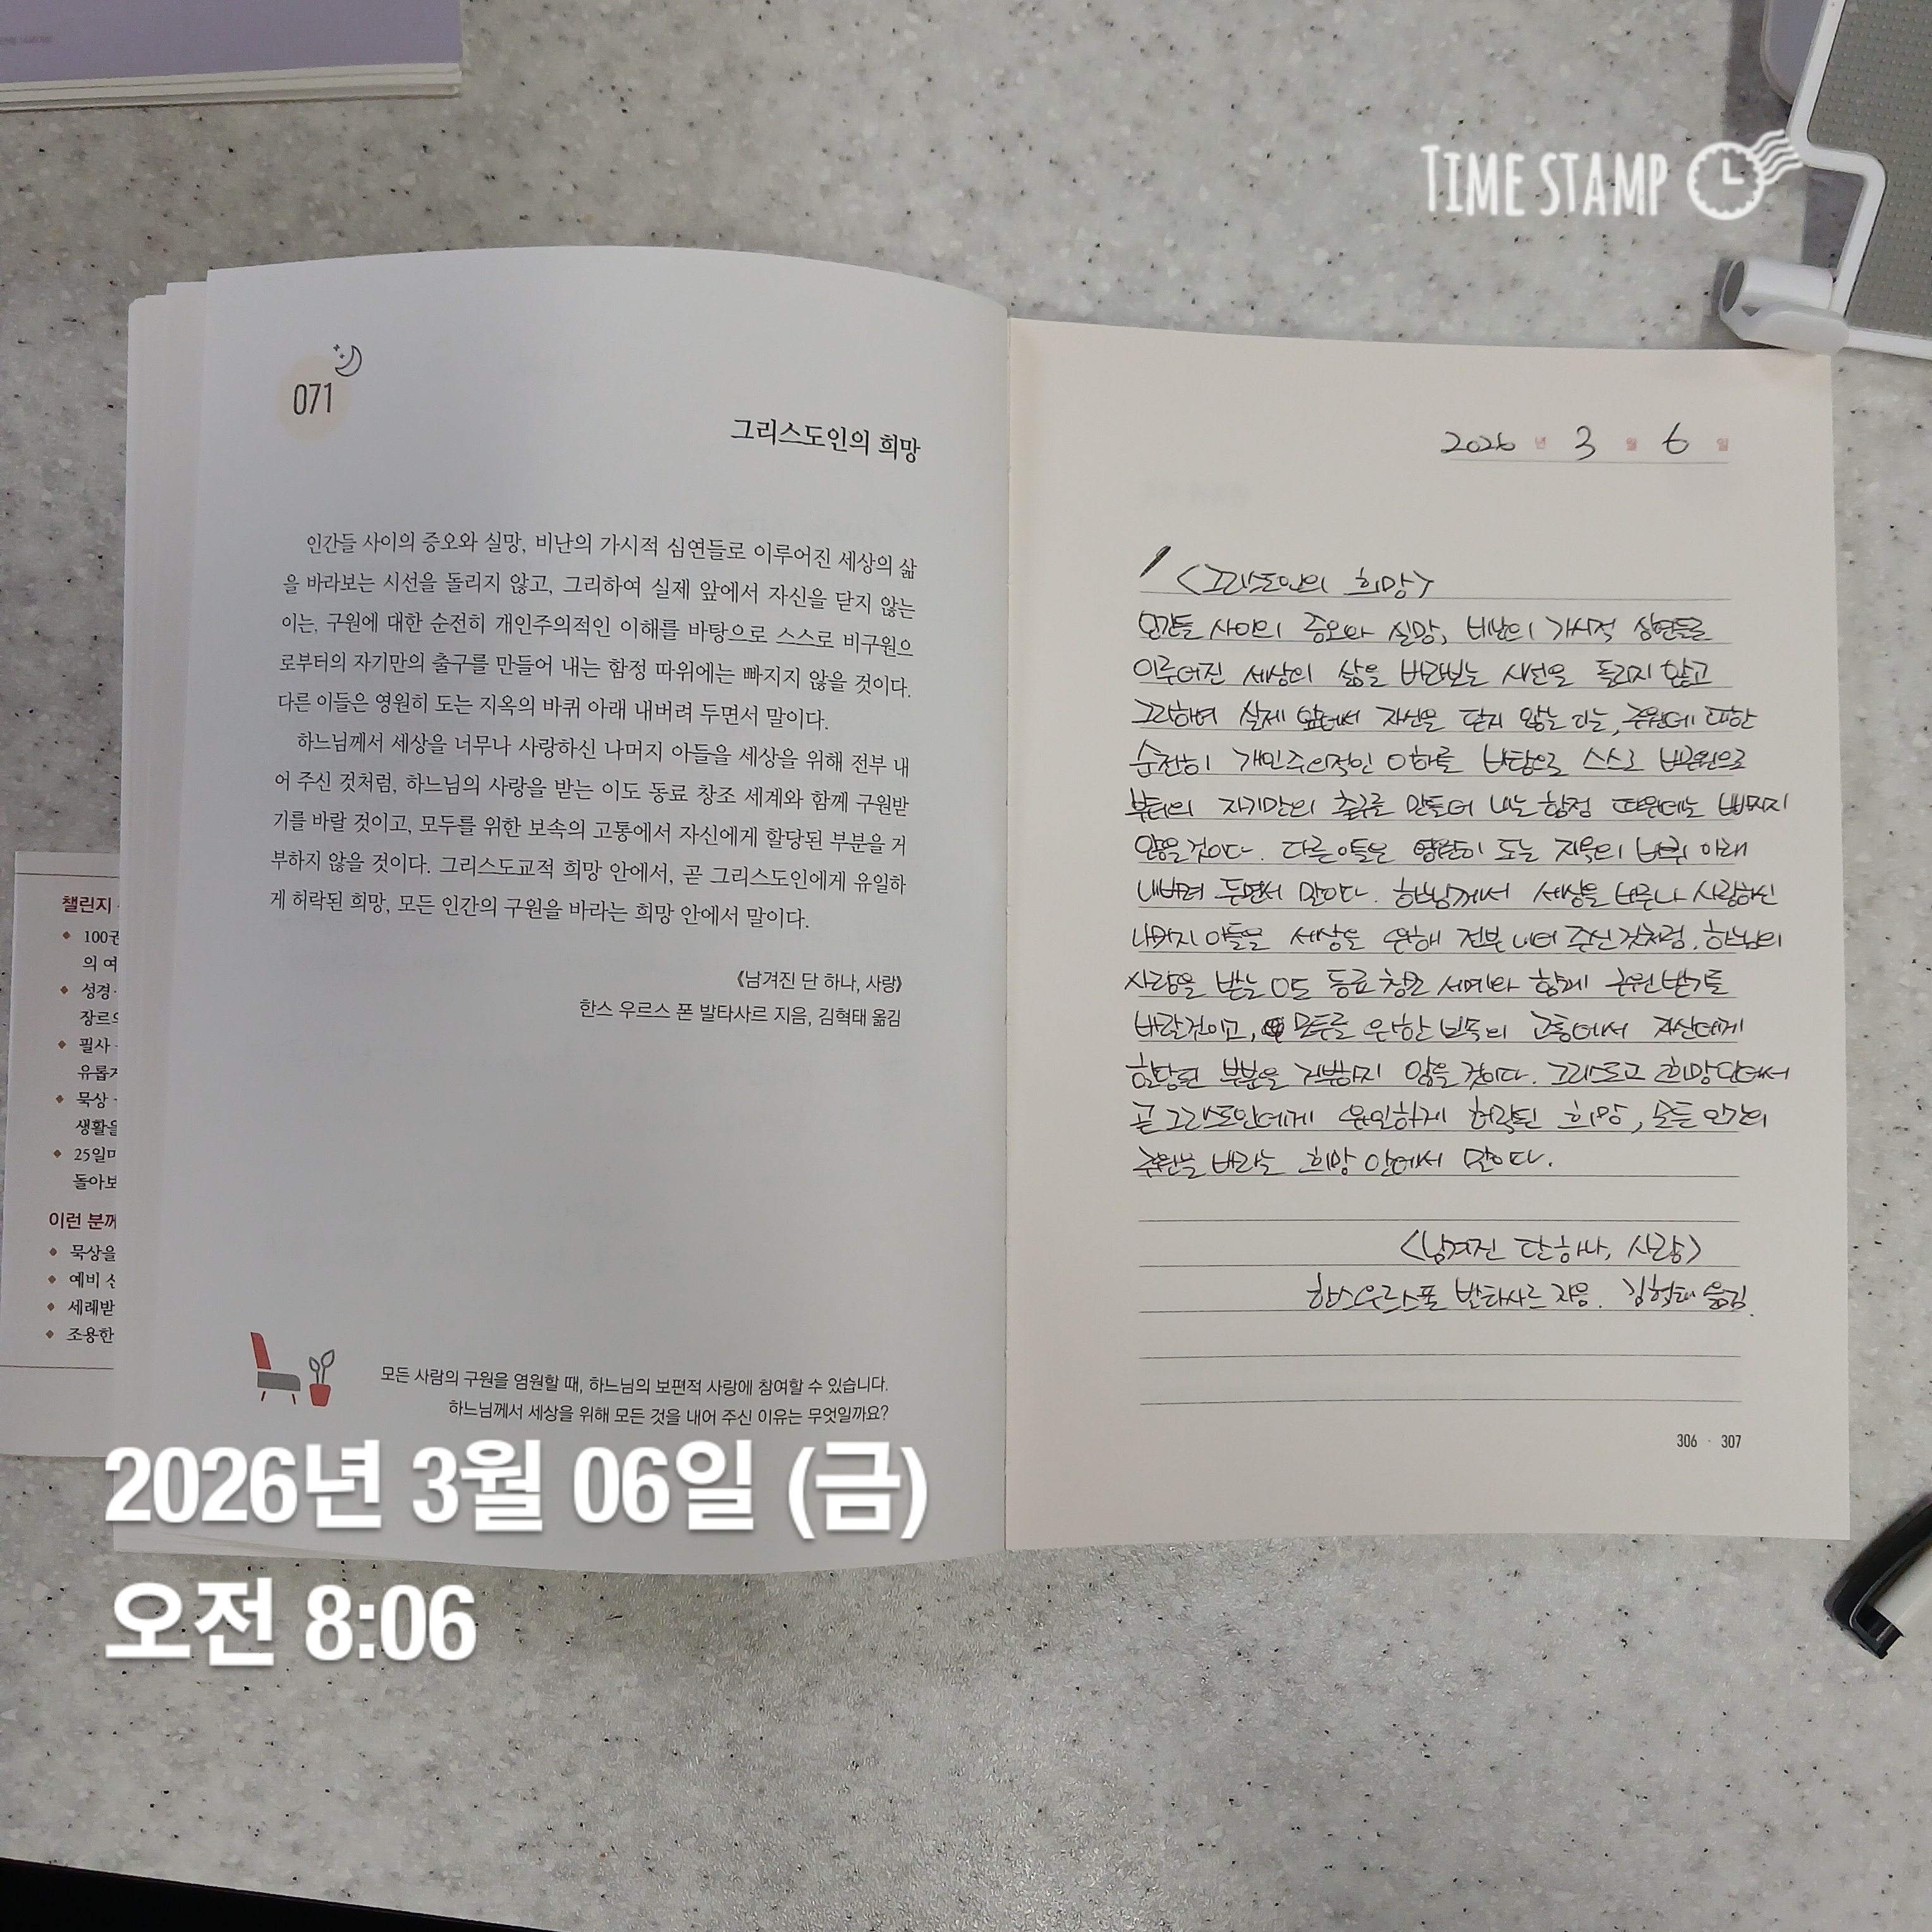 TIME STAMP
071
그리스도인의 희망
인간들 사이의 증오와 실망, 비난의 가시적 심연들로 이루어진 세상의 삶
을 바라보는 시선을 돌리지 않고, 그리하여 실제 앞에서 자신을 닫지 않는
이는, 구원에 대한 순전히 개인주의적인 이해를 바탕으로 스스로 비구원으
로부터의 자기만의 출구를 만들어 내는 함정 따위에는 빠지지 않을 것이다.
다른 이들은 영원히 도는 지옥의 바퀴 아래 내버려 두면서 말이다.
하느님께서 세상을 너무나 사랑하신 나머지 아들을 세상을 위해 전부 내
어 주신 것처럼, 하느님의 사랑을 받는 이도 동료 창조 세계와 함께 구원받
기를 바랄 것이고, 모두를 위한 보속의 고통에서 자신에게 할당된 부분을 거
부하지 않을 것이다. 그리스도교적 희망 안에서, 곧 그리스도인에게 유일하
게 허락된 희망, 모든 인간의 구원을 바라는 희망 안에서 말이다.
《남겨진 단 하나, 사랑》
한스 우르스 폰 발타사르 지음, 김혁태 옮김
모든 사람의 구원을 염원할 때, 하느님의 보편적 사랑에 참여할 수 있습니다.
하느님께서 세상을 위해 모든 것을 내어 주신 이유는 무엇일까요?
2026년 3월 6일
<그리스도인의 희망>
인간들 사이의 증오와 실망, 비난의 가시적 심연들로
이루어진 세상의 삶을 바라보는 시선을 돌리지 않고
그리하여 실제 앞에서 자신을 닫지 않는 이는, 구원에 대한
순전히 개인주의적인 이해를 바탕으로 스스로 비구원으로
부터의 자기만의 출구를 만들어 내는 함정 따위에는 빠지지
않을 것이다. 다른 이들은 영원히 도는 지옥의 바퀴 아래
내버려 두면서 말이다. 하느님께서 세상을 너무나 사랑하신
나머지 아들을 세상을 위해 전부 내어 주신 것처럼, 하느님의
사랑을 받는 이도 동료 창조 세계와 함께 구원 받기를
바랄 것이고, 모두를 위한 보속의 고통에서 자신에게
할당된 부분을 거부하지 않을 것이다. 그리스도교 희망 안에서
곧 그리스도인에게 유일하게 허락된 희망, 모든 인간의
구원을 바라는 희망 안에서 말이다.
<남겨진 단 하나, 사랑>
한스 우르스 폰 발타사르 지음. 김혁태 옮김.
306 · 307
챌린지
100권
의 여
성경
장르
필사
유롭
묵상
생활을
25일
돌아보
이런 분께
묵상을
예비 신
세례받
조용한
2026년 3월 06일 (금)
오전 8:06